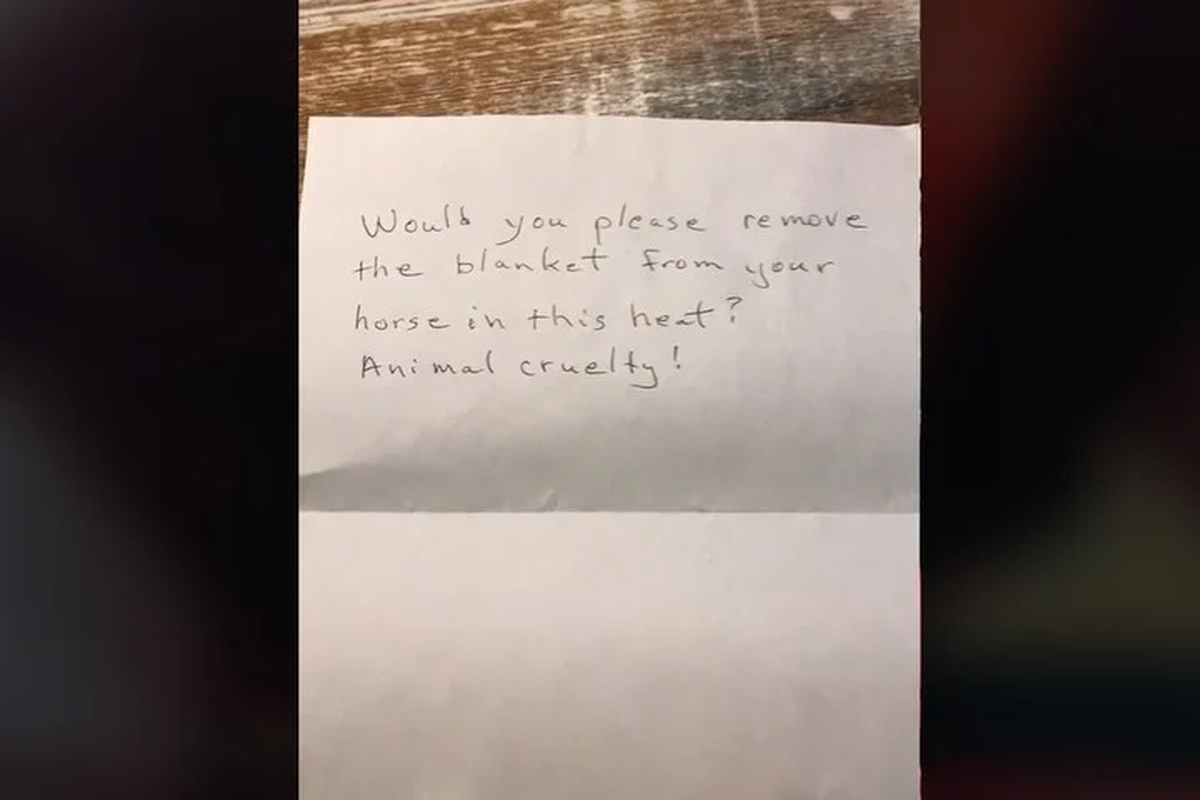 Would you please remove
the blanket from your
horse in this heat?
Animal cruelty!